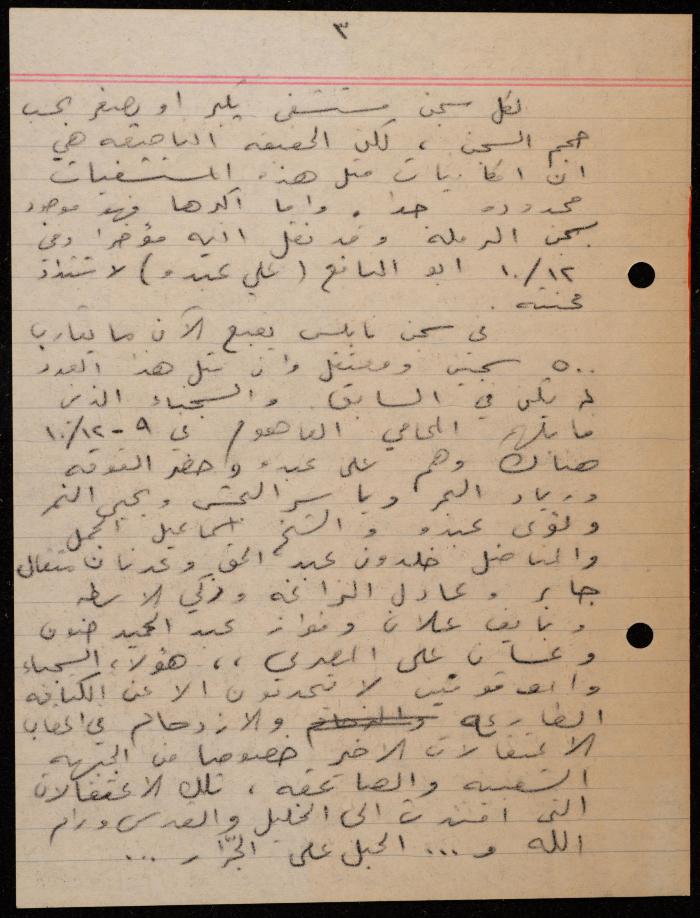 ٣
لكل سجن مستشفى يكبر او يصغر بحسب
حجم السجن ، لكن الحقيقه الناصعه هي
ان امكانيات مثل هذه المستشفيات
محدودة جدا . واما اكبرها فهو موجود
بسجن الرملة وقد نقل اليه مؤخرا وفي
١٠/١٢ ابو النافع (علي عبده) لاشتداد
محنته .
في سجن نابلس يقبع الآن ما يقارب
٥٠٠ سجين ومعتقل وان مثل هذا العدد
لم يكن في السابق . والسجناء الذين
قابلهم المحامي في ٩ - ١٠/١٢
هناك وهم علي عبده وخضر
وزياد وياسر ويحيى النمر
ولؤي عبده والشيخ اسماعيل الجمل
والمناضل خلدون عبد الحق وعدنان مثقال
جابر وعادل وزكي
ونايف علان وفواز عبد الحميد
وغسان علي المصري ،، هؤلاء السجناء
لا يتحدثون الا عن الكثافه
الطارئه والازدحام في اعقاب
الاعتقالات الاخيرة خصوصا من الجبهه
الشعبيه والصاعقه ، تلك الاعتقالات
التي امتدت الى الخليل والقدس ورام
الله و... الحبل على الجرّار ...